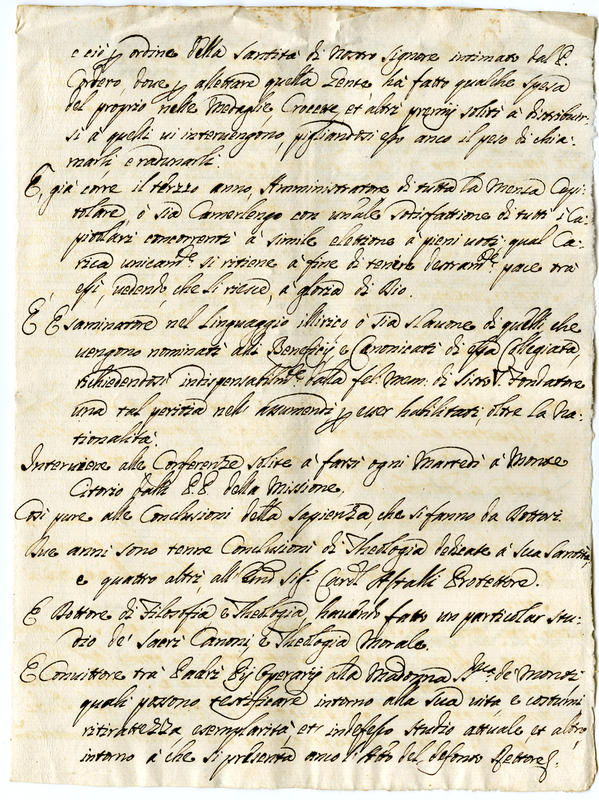 e ciò p ordine della Santità di Nostro Signore intimato dal P.
Cordero, dove p allettare quella Gente ha fatto qualche spesa
del proprio nelle Medaglie, Crocette et altri premij soliti à distribuir-
si à quelli vi intervengono pigliandosi esso anco il peso di chia-
marli, e radunarli.
E, già corre il terzo anno, Amministratore di tutta la Mensa Capi-
tolare, ò sia Camerlengo con uguale Sotisfattione di tutti i Ca-
pitolari concorrenti à simile elettione à pieni voti; qual Ca-
rica unicam.te si ritiene à fine di tenere destram.te pace trà
essi, vedendo, che li riesce, a gloria di Dio.
È Esaminatore nel linguaggio illirico ò sia slavone di quelli, che
vengono nominati alli Beneficij, e Canonicati di essa Collegiata,
richiedendosi indispensabilm.te dalla fel: mem: di Sisto V. Fondatore
una tal peritia nelli assumendi p esser habilitati, oltre la Na-
tionalità.
Interviene alle Conferenze solite à farsi ogni Martedì à Monte
Citorio dalli P.P. della Missione,
Così pure alle Conclusioni della Sapienza, che si fanno da Dottori.
Due anni sono tenne Conclusioni di Theologia dedicate à Sua Santità,
e quattro altri, all' Sig.r Card. Astalli Protettore.
È Dottore di Filosofia e Theologia, havendo fatto un particolar stu-
dio de' Sacri Canoni, e Theologia Morale.
È Convittore trà Padri Pij Operarij alla Madonna de' Monti
quali possono testificare intorno alla Sua vita, e costumi
ritiratezza esemplarità et indefesso studio attuale et altro
intorno à che si presenta anco l'Att.o del defonto Rettore.